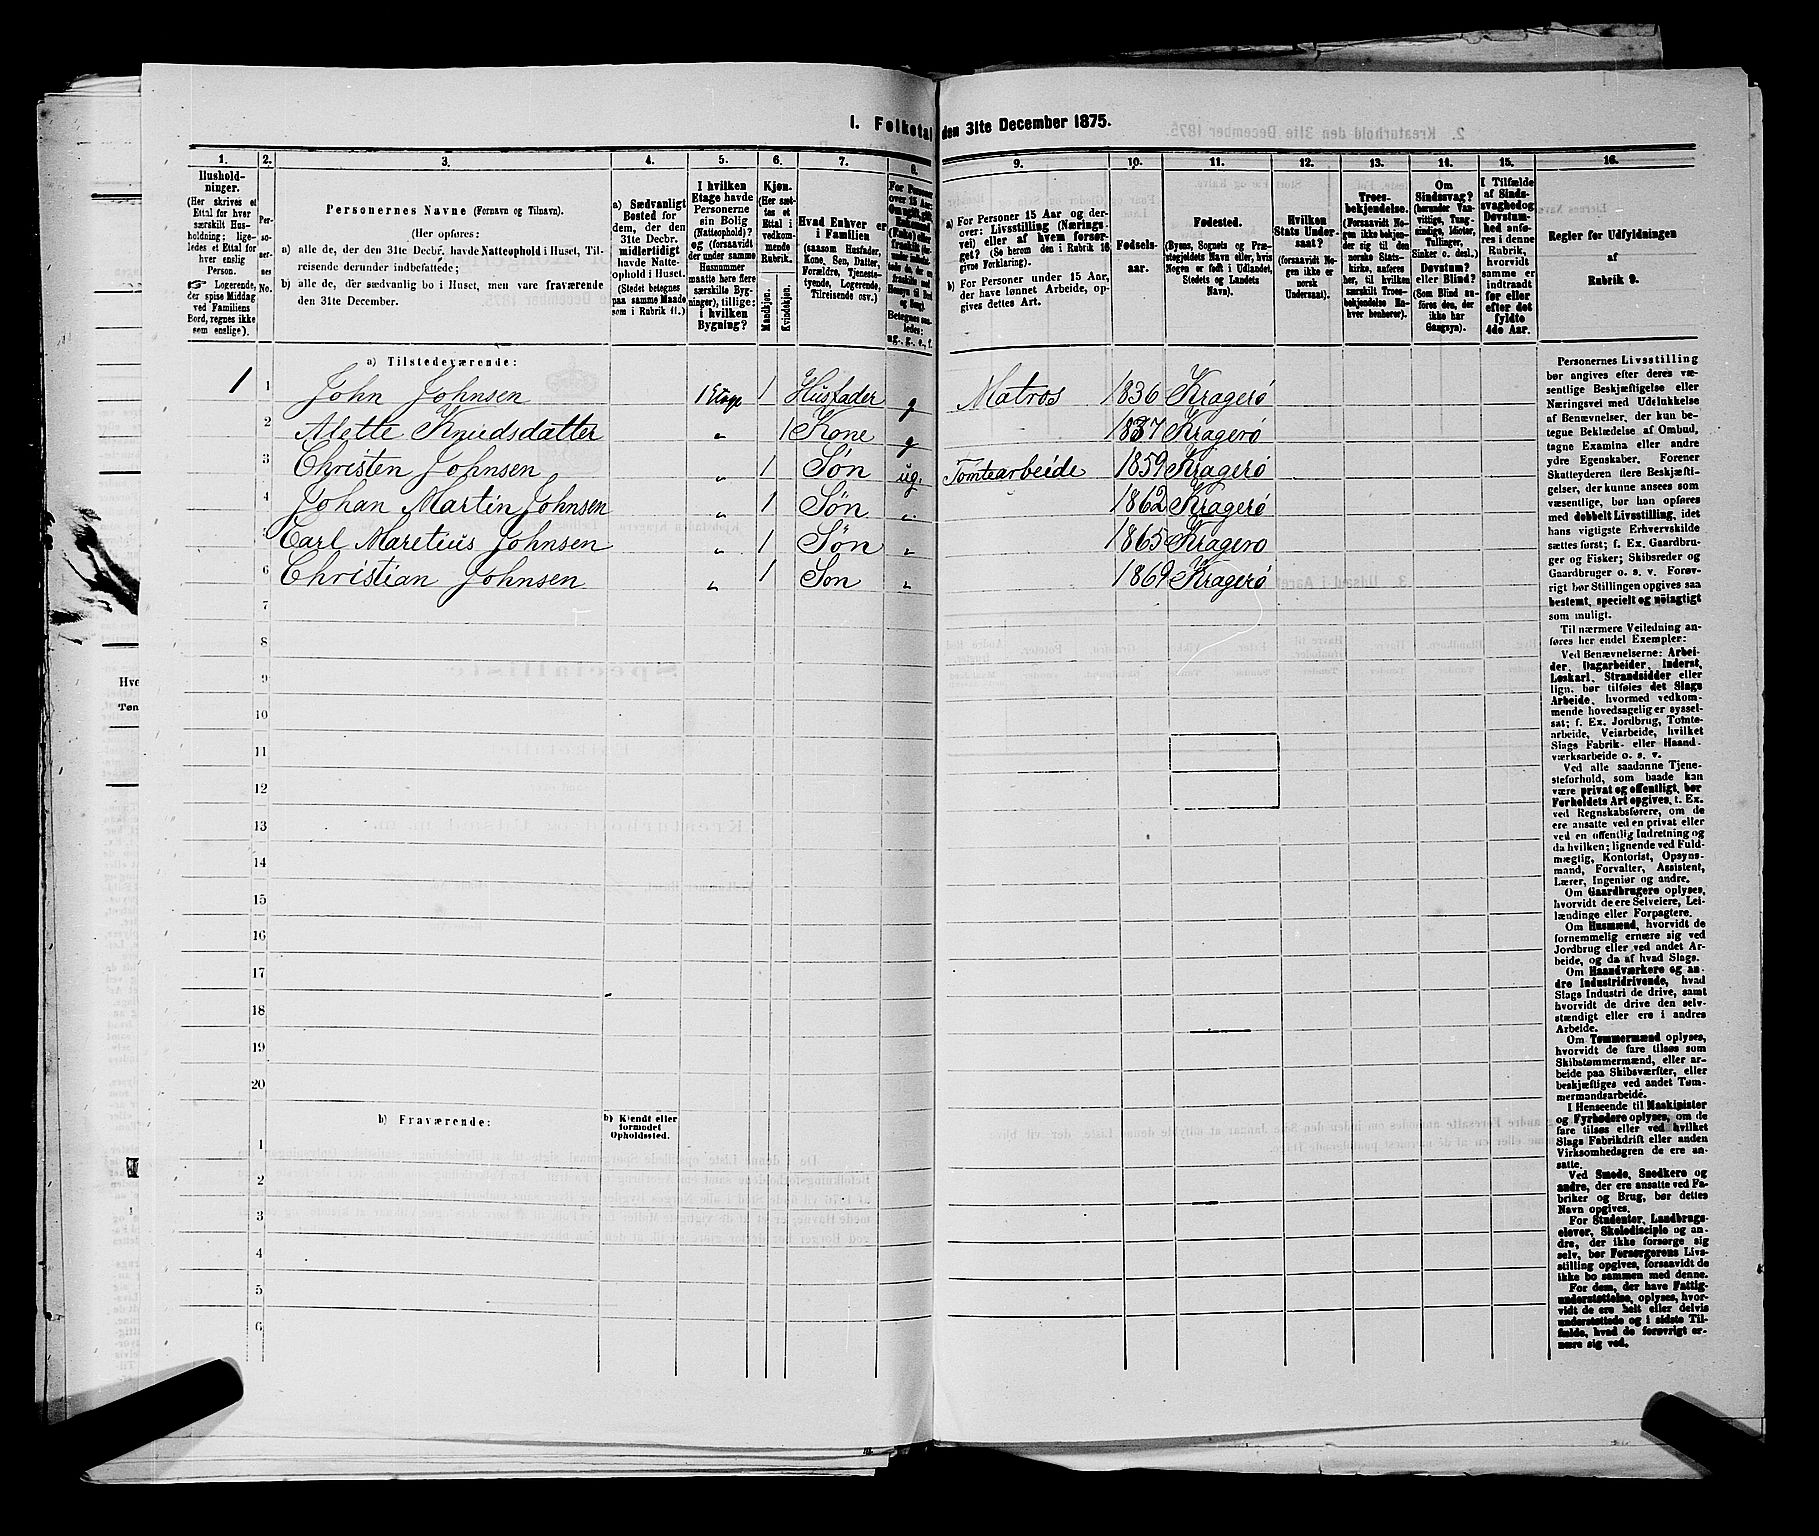 1. Folketal den 31te December 1875.
1. 2. 3. 4. 5. 6. 7. 8. 9. 10. 11. 12. 13. 14. 15. 16.
Husholdninger.
(Her skrives et Ettal for hver særskilt Husholdning; ligeledes et Ettal for enslig Person.
Logerende, der spise Middag ved Familiens Bord, regnes ikke som enslige).
Personernes No.
Personernes Navne (Fornavn og Tilnavn).
(Her opføres:
a) alle de, der den 31te Decbr. havde Natteophold i Huset, Tilreisende derunder indbefattede;
b) alle de, der sædvanlig bo i Huset, men vare fraværende den 31te December.
a) Sædvanligt Bosted for dem, der den 31te Decbr. midlertidigt havde Natteophold i Huset.
(Stedet betegnes paa samme Maade som i Rubrik 11.)
I hvilken Etage havde Personerne sin Bolig (Natteophold)? og (forsaavidt der under samme Husnummer maatte høre flere særskilte Bygninger), tillige: i hvilken Bygning?
Kjøn.
(Her sættes et Ettal i vedkommende Rubrik.
Mandkjøn.
Kvindekjøn.
Hvad Enhver er i Familien
(saasom Husfader, Kone, Søn, Datter, Forældre, Tjenestetyende, Logerende, Tilreisende osv.)
a) For Personer 15 Aar og derover: Livsstilling (Næringsvei) eller af hvem forsørget? (Se herom den i Rubrik 16 givne Forklaring).
b) For Personer under 15 Aar, der have lønnet Arbeide, opgives dettes Art.
Fødselsaar.
Fødested.
(Byens, Sognets og Præstegjeldets Navn eller, hvis Nogen er født i Udlandet, Stedets og Landets Navn).
Hvilken Stats Undersaat?
(forsaavidt Nogen ikke er norsk Undersaat).
Troesbekjendelse.
(Forsaavidt Nogen ikke bekjender sig til den norske Statskirke, anføres her, til hvilken særskilt Troesbekjendelse Enhver henhører).
Om Sindssvag?
(herunder Vanvittige, Tungsindige, Idioter, Tullinger, Sinker o. desl.)
Døvstum? eller Blind?
(Som Blind anføres den, der ikke har Gangsyn).
I Tilfælde af Sindssvaghed og Døvstumhed anføres i denne Rubrik, hvorvidt samme er indtraadt før eller efter det fyldte 4de Aar.
Regler for Udfyldningen
af
Rubrik 9.
a) Tilstedeværende:
1 1 John Johnsen 1 Etage 1 Husfader g Matros 1836 Kragerø
2 Alette Knudsdatter " 1 Kone g 1837 Kragerø
3 Christen Johnsen " 1 Søn ug. Tomtearbeide 1859 Kragerø
4 Johan Martin Johnsen " 1 Søn " 1862 Kragerø
5 Carl Maretius Johnsen " 1 Søn " 1865 Kragerø
6 Christian Johnsen " 1 Søn " 1869 Kragerø
7
8
9
10
11
12
13
14
15
16
17
18
19
20
b) Fraværende:
b) Kjendt eller formodet Opholdssted.
1
2
3
4
5
6
Personernes Livsstilling
bør angives efter deres væ-
sentlige Beskjæftigelse eller
Næringsvei med Udelukkelse
af Benævnelser, der kun be-
tegne Beklædelse af Ombud,
tagne Examina eller andre
ydre Egenskaber. Forener
Skatteyderen flere Beskjæfti-
gelser, der kunne ansees som
væsentlige, bør han opføres
med dobbelt Livsstilling, idet
hans vigtigste Erhvervskilde
sættes først; f. Ex. Gaardbru-
ger og Fisker; Skibsreder og
Gaardbruger o. s. v. Forøv-
rigt bør Stillingen opgives saa
bestemt, specielt og nøiagtigt
som muligt.
Til nærmere Veiledning an-
føres her endel Exempler:
Ved Benævnelserne: Arbei-
der, Dagarbeider, Inderst,
Løskarl, Strandsidder eller
lign. bør tilføies det Slags
Arbeide, hvormed vedkom-
mende hovedsagelig er syssel-
sat; f. Ex. Jordbrug, Tomte-
arbeide, Veiarbeide, hvilket
Slags Fabrik- eller Haand-
værksarbeide o. s. v.
Ved alle saadanne Tjene-
steforhold, som baade kan
være privat og offentligt, bør
Forholdets Art opgives, t. Ex.
ved Regnskabsførere, om de
ere ansatte ved en privat eller
ved en offentlig Indretning og
da hvilken; lignende ved Fuld-
mægtig, Kontorist, Opsyns-
mand, Forvalter, Assistent,
Lærer, Ingeniør og andre.
Om Gaardbrugere oplyses,
hvorvidt de ere Selveiere, Lei-
lændinge eller Forpagtere.
Om Husmænd, hvorvidt de
fornemmelig ernære sig ved
Jordbrug eller ved andet Ar-
beide, og da af hvad Slags.
Om Haandværkere og an-
dre Industridrivende, hvad
Slags Industri de drive, samt
hvorvidt de drive den selv-
stændigt eller ere i andres
Arbeide.
Om Tømmermænd oplyses,
hvorvidt de fare tilsøs som
Skibstømmermænd, eller ar-
beide paa Skibsværfter, eller
beskjæftiges ved andet Tøm-
mermandsarbeide.
I Henseende til Maskinister
og Fyrbødere oplyses, om de
fare tilsøs eller ved hvilket
Slags Fabrikdrift eller anden
Virksomhedsgren de ere an-
satte.
Ved Smede, Snedkere og
andre, der ere ansatte ved Fa-
briker og Brug, bør dettes
Navn opgives.
For Studenter, Landbrugs-
elever, Skoledisciple og an-
dre, der ikke forsørge sig
selv, bør Forsørgerens Livs-
stilling opgives, forsaavidt de
ikke bo sammen med denne.
For dem, der have Fattig-
understøttelse, oplyses, hvor-
vidt de ere helt eller delvis
understøttede og i sidste Til-
fælde, hvad de forøvrigt er-
nære sig ved.